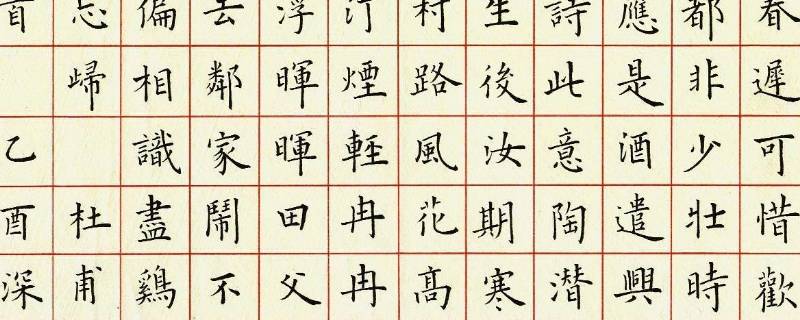 春遲可惜歡
都非少壯時
應是酒遣興
詩此意陶潛
生後汝期寒
村路風花高
汀煙輕冉冉
淨暉暉田父
去鄰家鬧不
偏相識盡鷄
忘歸 杜甫
首 乙酉深